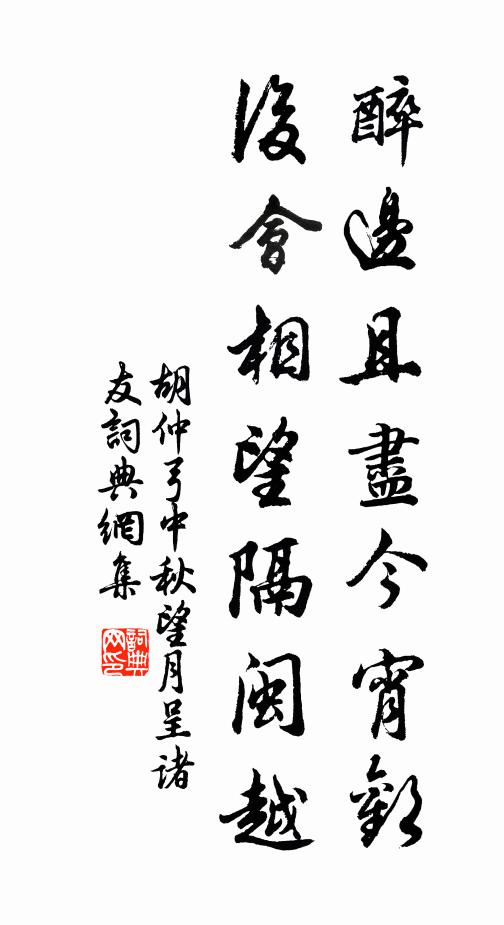 醉邊且盡今宵歡
後會相望隔閩越
胡仲弓中秋望月呈諸
友詞典網集
詞典
网印